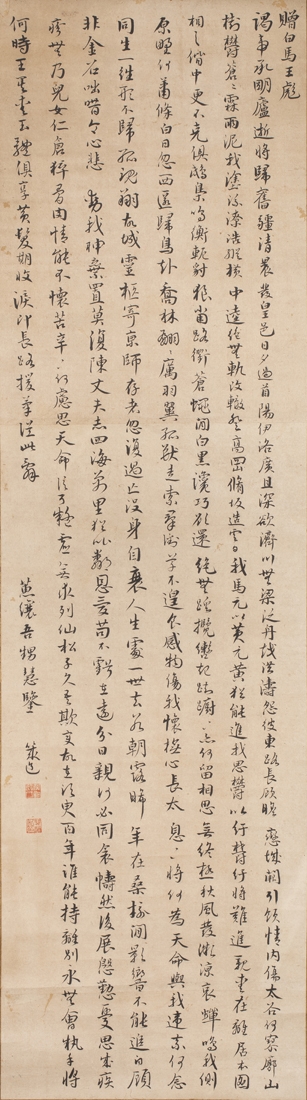 贈白馬王彪
謁帝承明廬逝將歸舊疆清晨發皇邑日夕過首陽伊洛廣且深欲濟川無梁泛舟越洪濤怨彼東路長顧瞻戀城闕引領情內傷太谷何寥廓山
樹鬱蒼〻霖雨泥我塗流潦浩縱橫中逵絕無軌改轍登高岡脩坂造雲日我馬玄以黃玄黃猶能進我思鬱以紆鬱紆將難進親愛在離居本圖
相與偕中更不克俱鴟梟鳴衡軛豺狼當路衢蒼蠅間白黑讒巧欲還絕無蹊攬轡止踟躕〻亦何留相思無終極秋風發微涼寒蟬鳴我側
原野何蕭條白日忽西匿歸鳥赴喬林翩〻厲羽翼孤獸走索群銜草不遑食感物傷我懷撫心長太息〻將何為天命與我違奈何念
同生一往形不歸孤魂翔故域靈柩寄京師存者忽復過亡沒身自衰人生處一世去若朝露晞年在桑榆間影響不能追自顧
非金石咄唶令心悲動我神棄置莫復陳丈夫志四海萬里猶比鄰恩愛苟不虧在遠分日親何必同衾幬然後展慇懃憂思成疾
疢無乃兒女仁倉猝骨肉情能不懷苦辛〻何慮思天命信可疑虛無求列仙松子久吾欺變故在須臾百年誰能持離別永無會執手將
何時王其愛玉體俱享黃髮期收淚即長路援筆從此辭 吾甥慧鑒